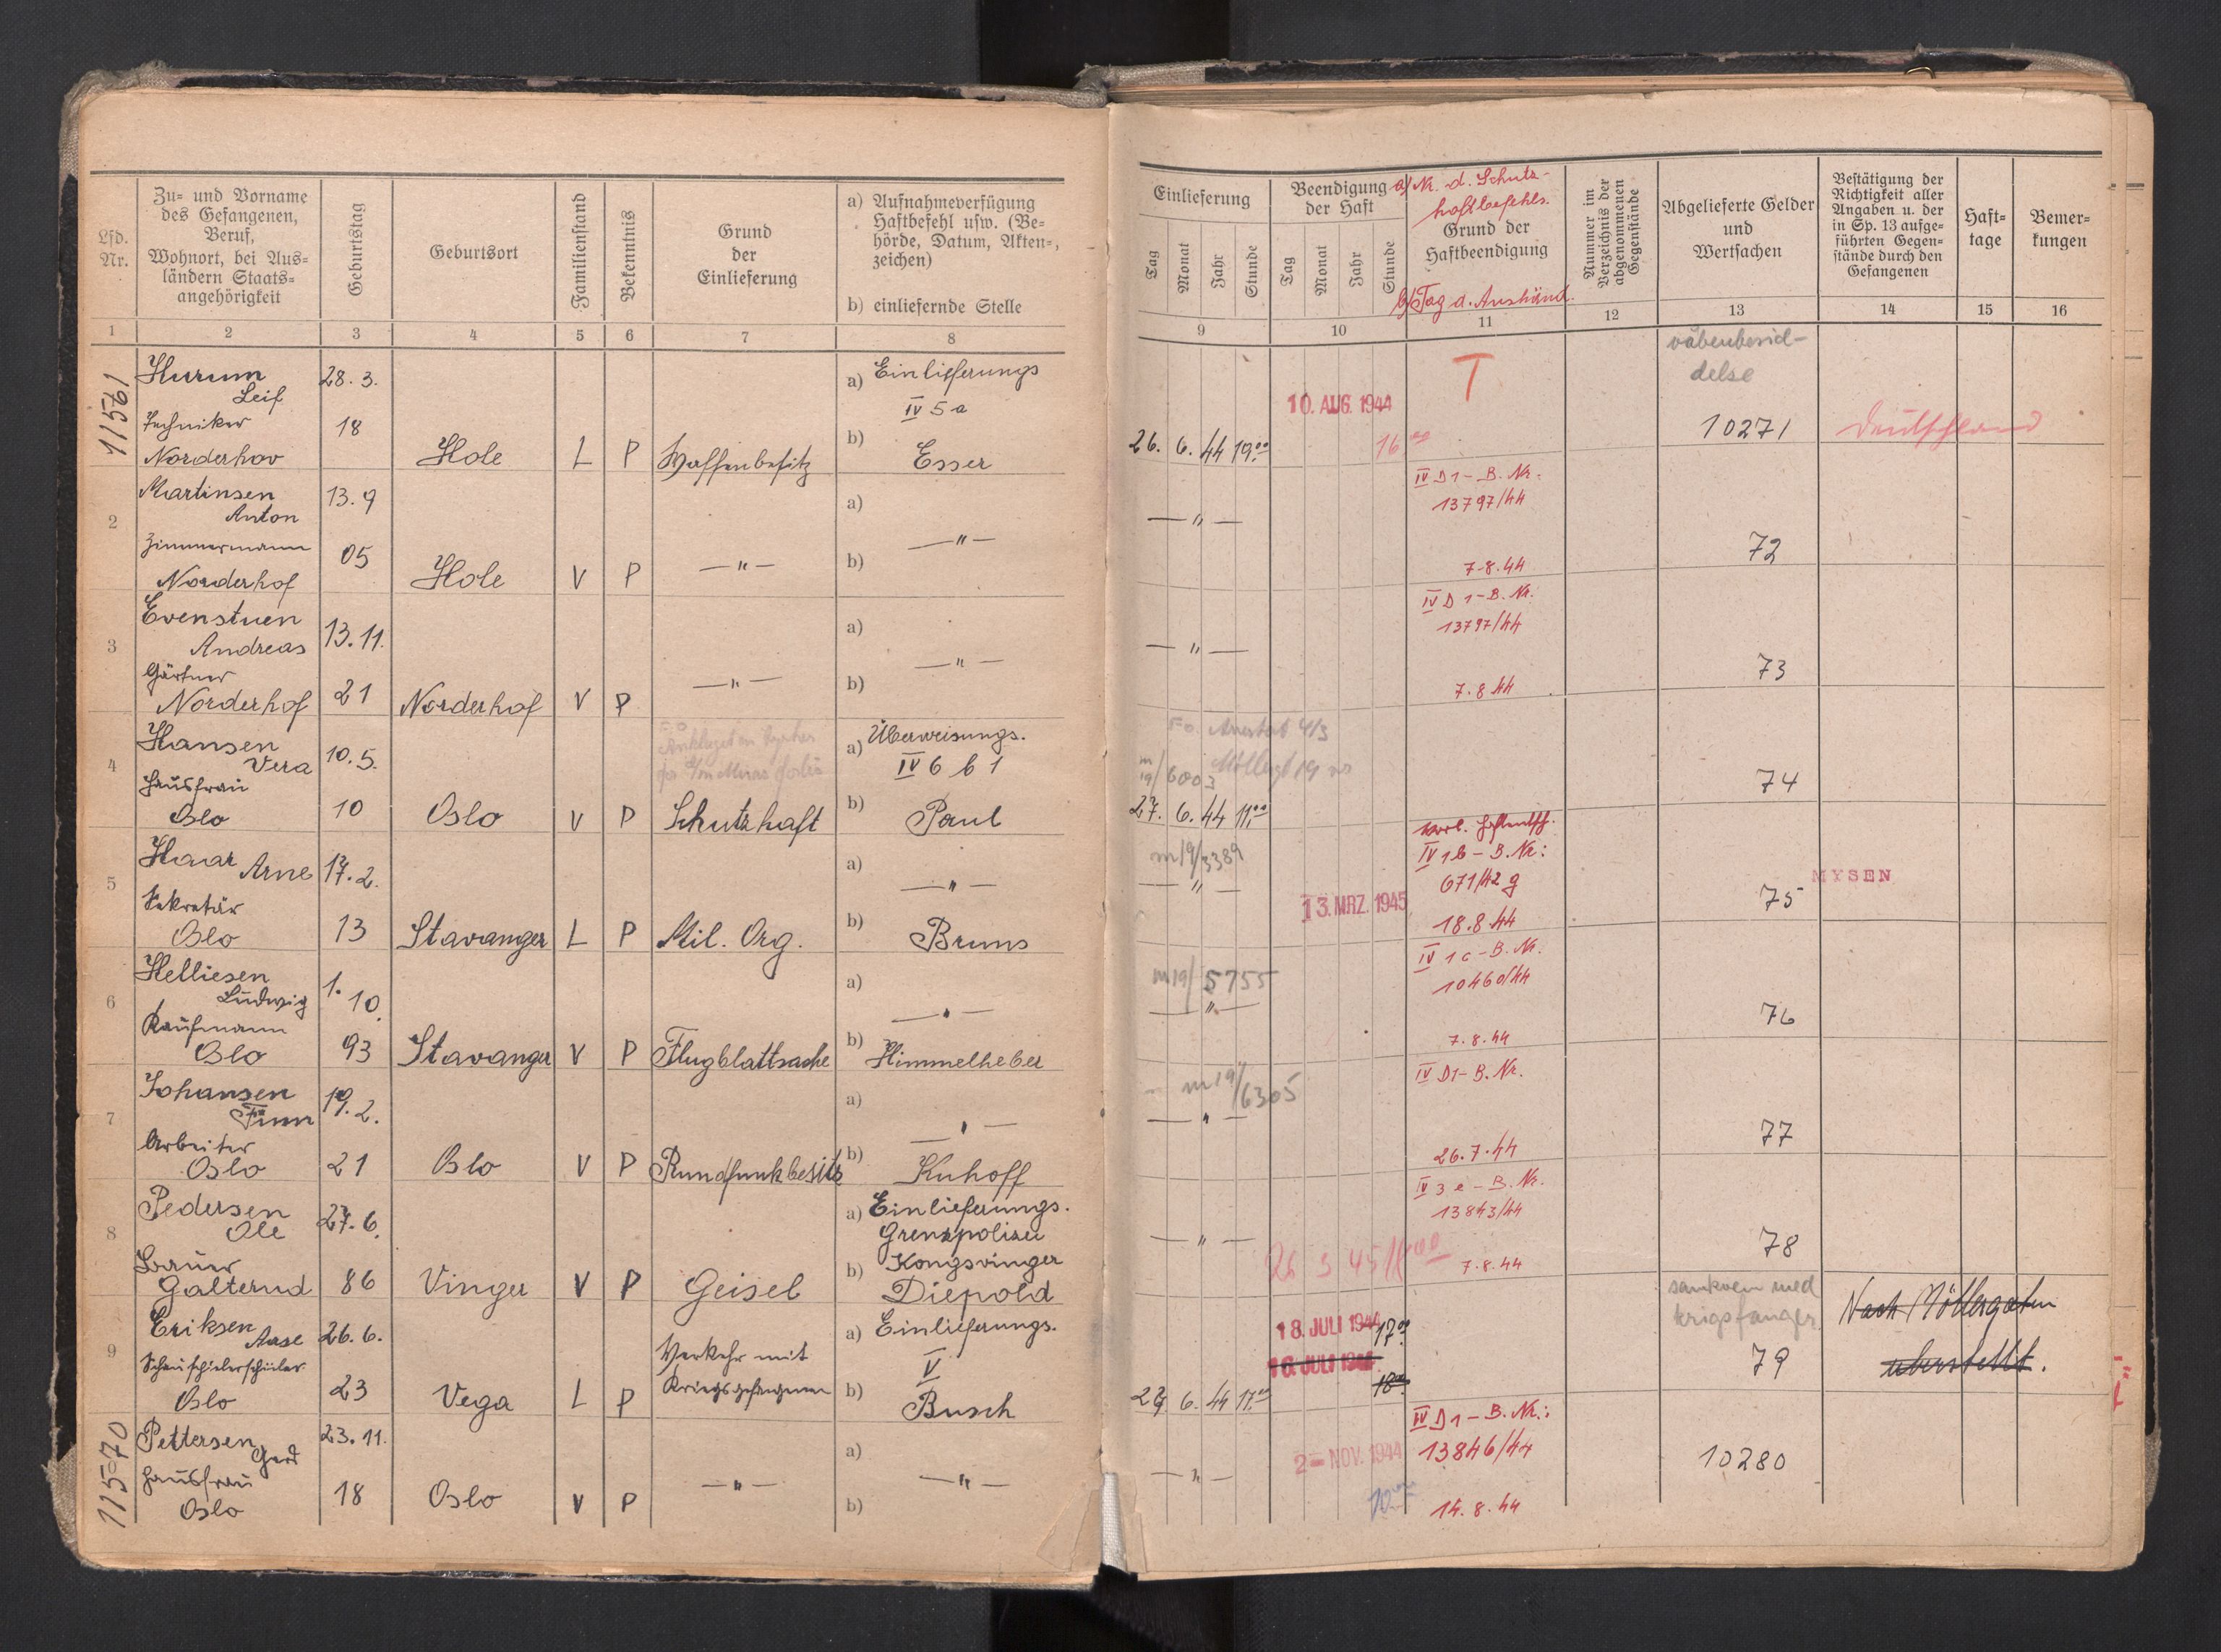 Lfd. Nr.
Zu- und Vorname
des Gefangenen,
Beruf,
Wohnort, bei Aus-
ländern Staats-
angehörigkeit
Geburtstag
Geburtsort
Familienstand
Bekenntnis
Grund
der
Einlieferung
a) Aufnahmeverfügung
Haftbefehl usw. (Be-
hörde, Datum, Akten-,
zeichen)
b) einliefernde Stelle
1 2 3 4 5 6 7 8
11561
Hurum 28. 3. a) Einlieferungs
Leif IV 5 a
Techniker 18 b)
Norderhov Hole L P Waffenbesitz Esser
2
Martinsen 13. 9 a)
Anton
Zimmermann 05 b) —"—
Norderhof Hole V P —"—
3
Evenstuen 13. 11. a)
Andreas —"—
Gärtner b)
Norderhof 21 Norderhof V P —"—
4
Hansen 10. 5. a) Überweisungs.
Vera IV 6 b 1
Hausfrau b)
Oslo 10 Oslo V P Schutzhaft Paul
5
Haar Arne 17. 2. a)
—"—
Sekretär b)
Oslo 13 Stavanger L P Mil. Org. Bruns
6
Helliesen 1. 10. a)
Ludwig —"—
Kaufmann b)
Oslo 93 Stavanger V P Flugblattsache Himmelheber
7
Johansen 19. 2. a)
Finn —"—
Arbeiter b)
Oslo 21 Oslo V P Rundfunkbesitz Kuhoff
8
Pedersen 27. 6. a) Einlieferungs.
Ole Grenzpolizei
Bauer b) Kongsvinger
Galterud 86 Vinger V P Geisel Diepold
9
Eriksen Aase 26. 6. a) Einlieferungs.
Schauspielerschüler Verkehr mit V
Kriegsgefangenen b)
Oslo 23 Vega L P Busch
11570
Pettersen 23. 11. a)
Gerd
Hausfrau —"— —"—
Oslo 18 Oslo V P b)
Einlieferung
Tag Monat Jahr Stunde
Beendigung
der Haft
Tag Monat Jahr Stunde
a) Nr. d. Schutz-
haftbefehls.
Grund der
Haftbeendigung
b) Tag d. Aushänd.
Nummer im
Verzeichnis der
abgenommenen
Gegenstände
Abgelieferte Gelder
und
Wertsachen
Bestätigung der
Richtigkeit aller
Angaben u. der
in Sp. 13 aufge-
führten Gegen-
stände durch den
Gefangenen
Haft-
tage
Bemer-
kungen
9 10 11 12 13 14 15 16
våbenbesid-
delse
T
10. AUG. 1944
10271 Deutschland
26. 6. 44 19.00 16.00
IV D 1 – B. Nr.
13797/44
—"—
72
7. 8. 44
IV D 1 – B. Nr.
13797/44
—"—
73
7. 8. 44
m 19/6003
74
27. 6. 44 11.00
IV 1 b – B. Nr:
m 19/3389
—"— 671/42 g
13. MRZ. 1945 75 MYSEN
18. 8. 44
IV 1 c – B. Nr.
m 19/5755 10460/44
—"—
76
7. 8. 44
IV D 1 – B. Nr.
m 19/6305
—"—
77
26. 7. 44
IV 3 e – B. Nr.
13843/44
—"—
78
26 3 45
7. 8. 44
samkvem med
krigsfanger
Nach Möllergaten
18. JULI 1944 17.00
79 überstellt.
16. JULI 1944
18.00
27. 6. 44 17.00
IV D 1 – B. Nr.:
2 – NOV. 1944 13846/44
—"— 10280
14. 8. 44